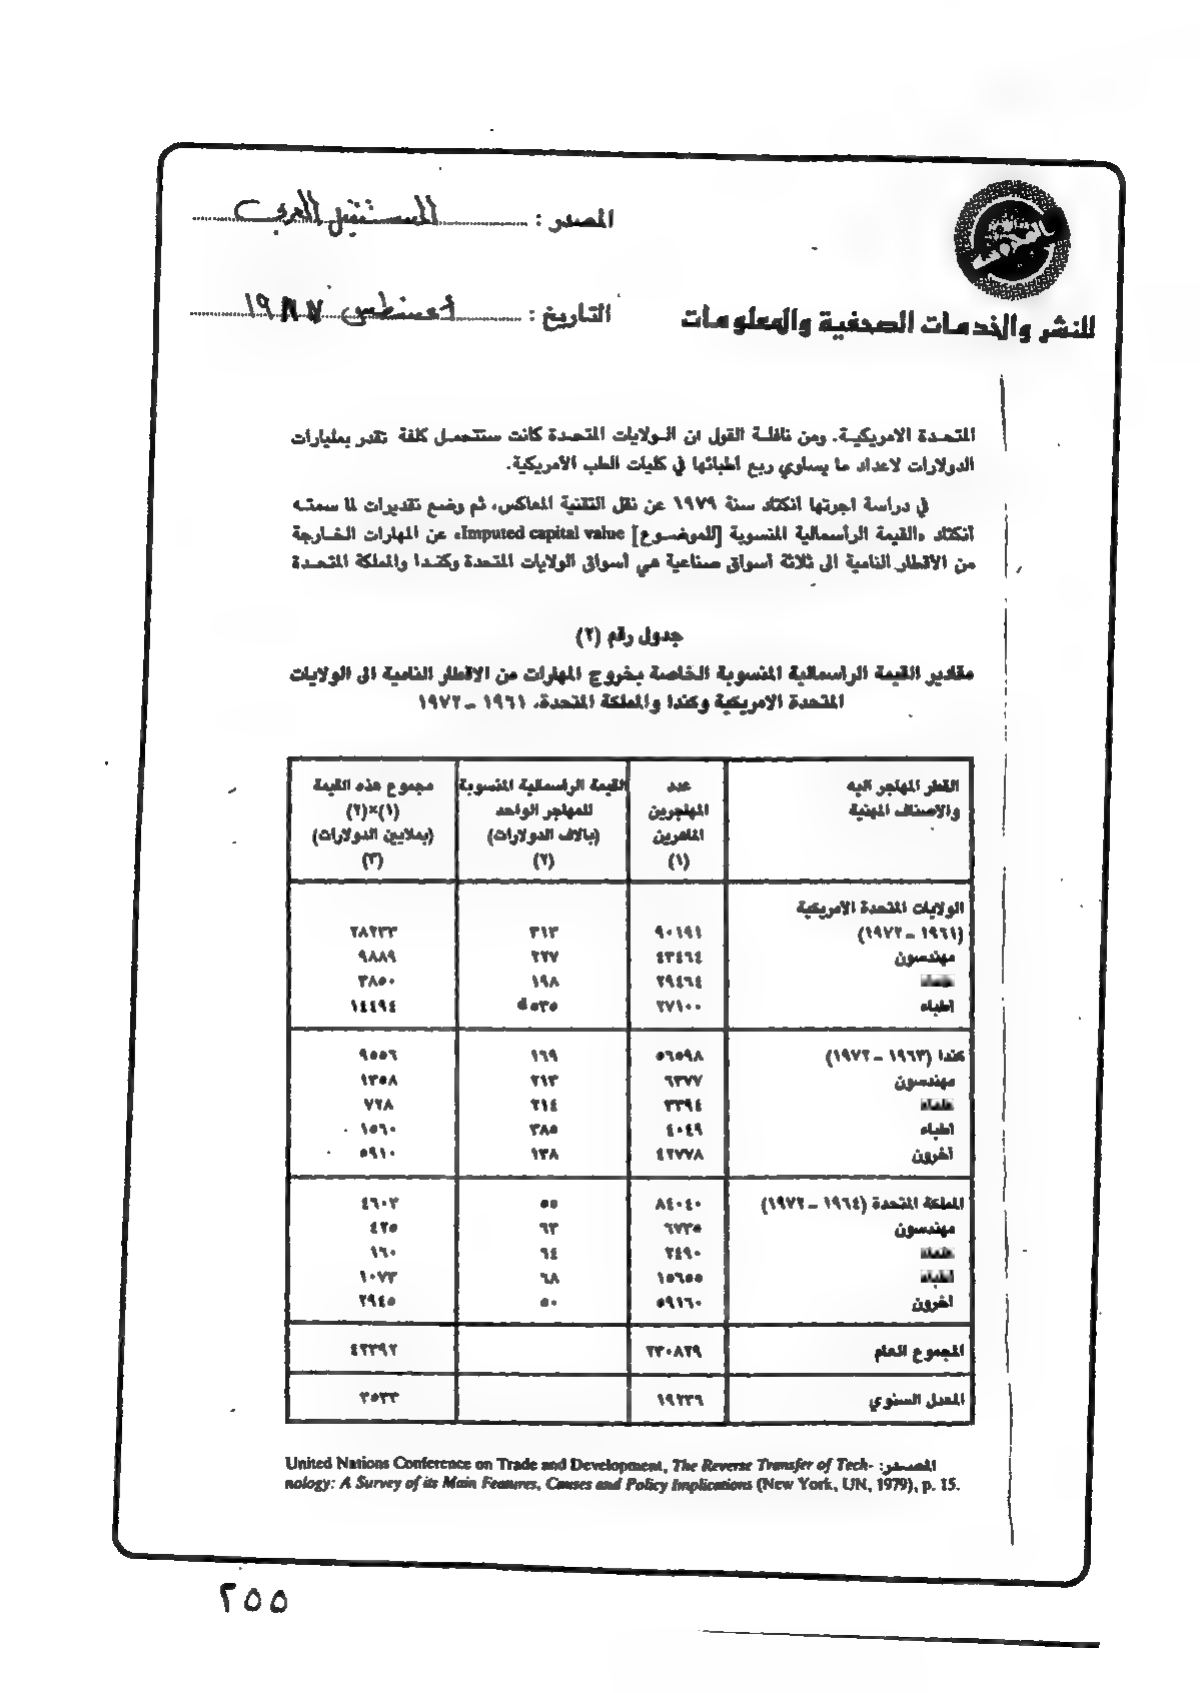 المصدر : المستقبل العربي
للنشر والخدمات الصحفية والمعلومات
التاريخ : أغسطس ١٩٨٧
المتحدة الامريكية. ومن نافلة القول ان الولايات المتحدة كانت ستتحمل كلفة تقدر بمليارات
الدولارات لاعداد ما يساوي ربع اطبائها في كليات الطب الأمريكية.
في دراسة اجرتها انكتاد سنة ١٩٧٩ عن نقل التقنية المعاكس، تم وضع تقديرات لما سمته
أنكتاد «القيمة الرأسمالية المنسوبة [للموضوع] Imputed capital value» عن المهارات الخارجة
من الاقطار النامية الى ثلاثة أسواق صناعية هي أسواق الولايات المتحدة وكندا والمملكة المتحدة
جدول رقم (٢)
مقادير القيمة الراسمالية المنسوبة الخاصة بخروج المهارات من الاقطار النامية الى الولايات
المتحدة الامريكية وكندا والمملكة المتحدة، ١٩٦١ - ١٩٧٢
القطر المهاجر اليه عدد القيمة الراسمالية المنسوبة مجموع هذه القيمة
والاصناف المهنية المهاجرين للمهاجر الواحد (١)×(٢)
الماهرين (بالاف الدولارات) (بملايين الدولارات)
(١) (٢) (٣)
الولايات المتحدة الامريكية
(١٩٦١ - ١٩٧٢) ٩٠١٩١ ٣١٣ ٢٨٢٣٣
مهندسون ٤٣٤٦٤ ٢٢٧ ٩٨٨٩
علماء ١٩٨ ٣٨٥٠
اطباء ٢٧١٠٠ ٥٣٥ ١٤٤٩٤
كندا (١٩٦٣ - ١٩٧٢) ٥٦٥٩٨ ١٦٩ ٩٥٥٦
مهندسون ٦٣٧٧ ٢١٣ ١٣٥٨
علماء ٣٣٩٤ ٢١٤ ٧٢٨
اطباء ٤٠٤٩ ٣٨٥ ١٥٦٠
آخرون ٤٢٧٧٨ ١٣٨ ٥٩١٠
المملكة المتحدة (١٩٦٤ - ١٩٧٢) ٨٤٠٤٠ ٥٥ ٤٦٠٣
مهندسون ٦٧٣٥ ٦٣ ٤٢٥
علماء ٢٤٩٠ ٦٤ ١٦٠
اطباء ١٥٦٥٥ ٦٨ ١٠٧٣
آخرون ٥٩١٦٠ ٥٠ ٢٩٤٥
المجموع العام ٢٣٠٨٢٩ ٤٢٣٩٢
المعدل السنوي ١٩٢٣٦ ٣٥٣٣
المصدر: United Nations Conference on Trade and Development, The Reverse Transfer of Tech-
nology: A Survey of its Main Features, Causes and Policy Implications (New York, UN, 1979), p. 15.
٢٥٥